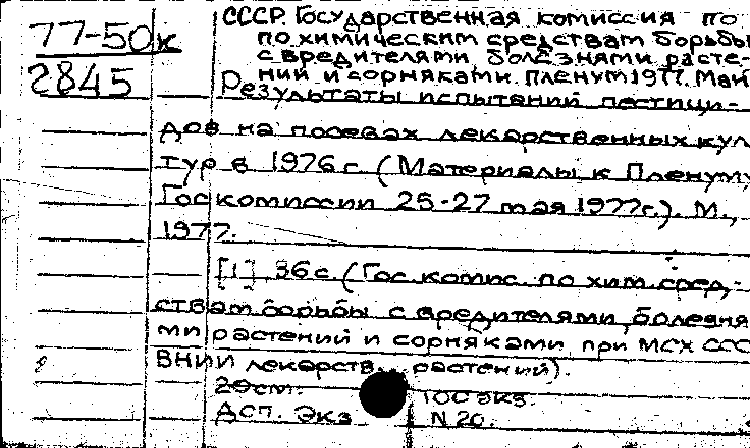 77-50к
2845
СССР. Государственная комиссия по
по химическим средствам борьбы
с вредителями, болезнями расте-
ний и сорняками. Пленум 1977. Май
Результаты испытаний пестици-
дов на посевах лекарственных кул
тур в 1976 г. (Материалы к Пленуму
Госкомиссии 25-27 мая 1977г.). М.,
1977.
[1], 36 с. (Гос. комис. по хим. сред-
ствам борьбы с вредителями, болезня
ми растений и сорняками при МСХ ССС
ВНИИ лекарств. растений).
20см. 100 экз.
Деп. Экз N 20.